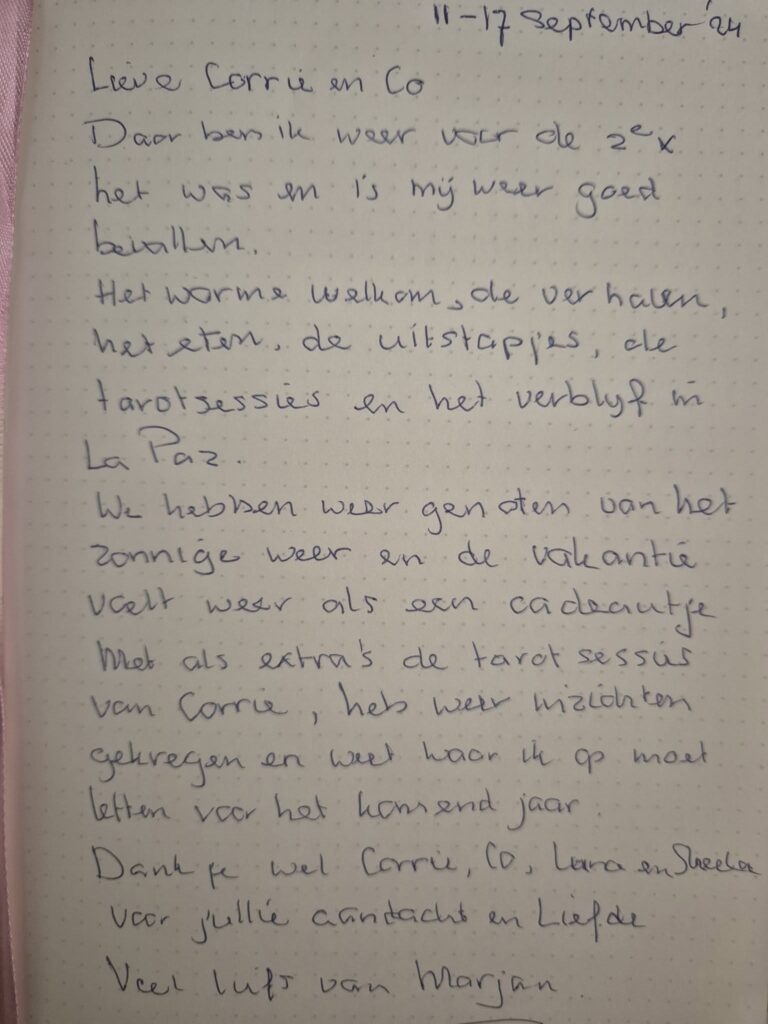 11-17 September '24
Lieve Corrie en Co
Daar ben ik weer voor de 2e x
het was en is mij weer goed
bevallen.
Het warme welkom, de verhalen,
het eten, de uitstapjes, de
tarotsessies en het verblijf in
La Paz.
We hebben weer genoten van het
zonnige weer en de vakantie
voelt weer als een cadeautje
Met als extra's de tarot sessies
van Corrie, heb weer inzichten
gekregen en weet waar ik op moet
letten voor het komend jaar.
Dank je wel Corrie, Co, Lara en
voor jullie aandacht en Liefde
Veel liefs van Marjan